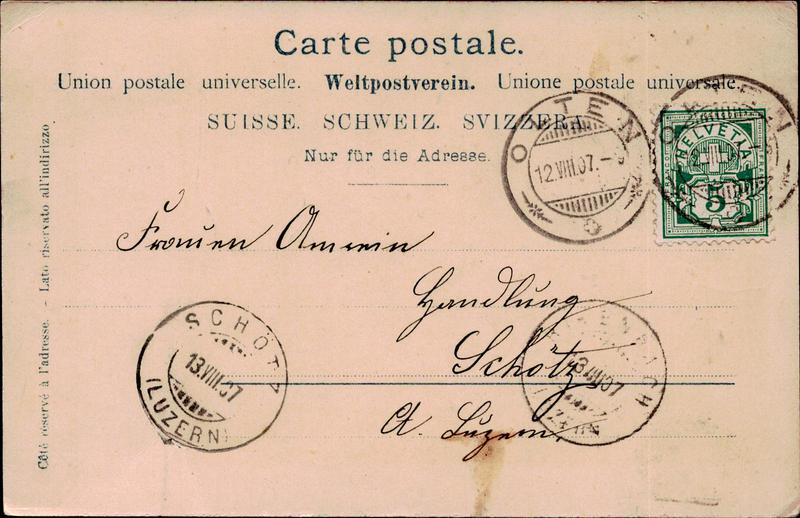 Carte postale.
Union postale universelle. Weltpostverein. Unione postale universale.
SUISSE. SCHWEIZ. SVIZZERA.
Nur für die Adresse.
Côté réservé à l'adresse. - Lato riservato all'indirizzo.
OLTEN
12.VIII.07.-9
HELVETIA
5
Frauen Amrein
Handlung
Schötz
Ct. Luzern.
SCHÖTZ
13.VIII.07
(LUZERN)
13.VIII.07